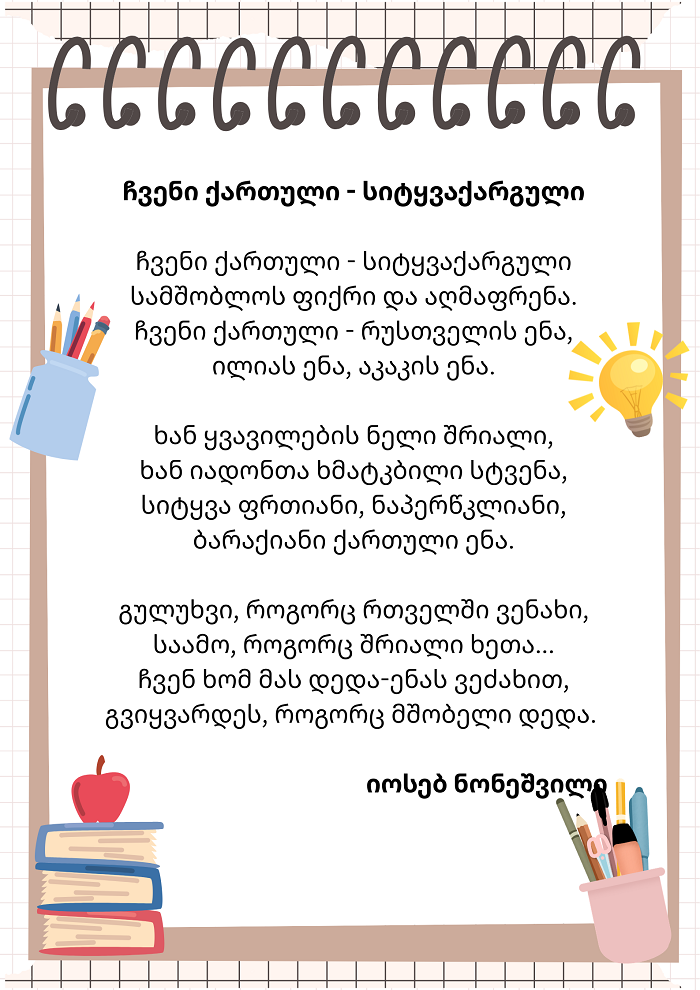 ჩვენი ქართული - სიტყვაქარგული
ჩვენი ქართული - სიტყვაქარგული
სამშობლოს ფიქრი და აღმაფრენა.
ჩვენი ქართული - რუსთველის ენა,
ილიას ენა, აკაკის ენა.
ხან ყვავილების ნელი შრიალი,
ხან იადონთა ხმატკბილი სტვენა,
სიტყვა ფრთიანი, ნაპერწკლიანი,
ბარაქიანი ქართული ენა.
გულუხვი, როგორც რთველში ვენახი,
საამო, როგორც შრიალი ხეთა...
ჩვენ ხომ მას დედა-ენას ვეძახით,
გვიყვარდეს, როგორც მშობელი დედა.
იოსებ ნონეშვილი